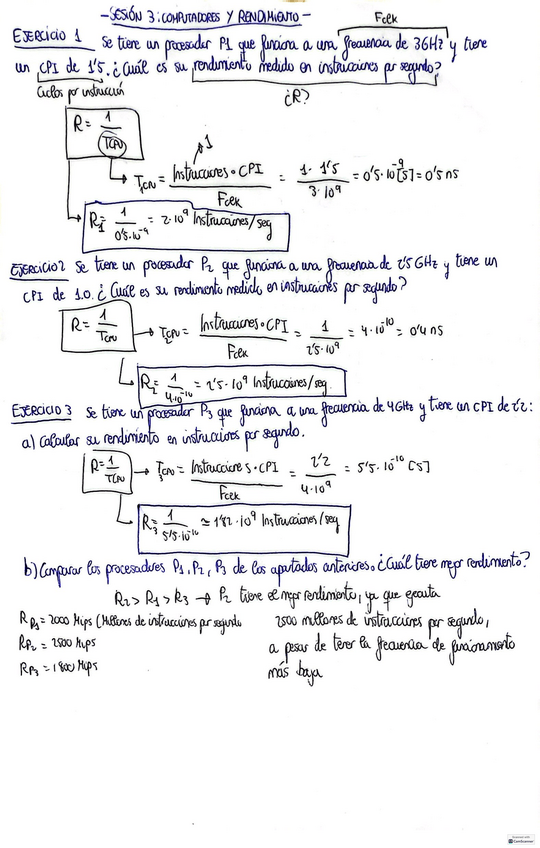 -SESIÓN 3: COMPUTADORES Y RENDIMIENTO-
Fclk
EJERCICIO 1 Se tiene un procesador P1 que funciona a una frecuencia de 3GHz y tiene
un CPI de 1'5. ¿Cuál es su rendimiento medido en instrucciones por segundo?
Ciclos por instrucción
¿R?
R = 1 / TCPU
1
T1CPU = Instrucciones · CPI / Fclk = 1 · 1'5 / 3·10^9 = 0'5·10^-9 [s] = 0'5 ns
R1 = 1 / 0'5·10^-9 = 2·10^9 Instrucciones/seg
EJERCICIO 2 Se tiene un procesador P2 que funciona a una frecuencia de 2'5 GHz y tiene un
CPI de 1.0. ¿Cuál es su rendimiento medido en instrucciones por segundo?
R = 1 / TCPU → T2CPU = Instrucciones · CPI / Fclk = 1 / 2'5·10^9 = 4·10^-10 = 0'4 ns
R2 = 1 / 4·10^-10 = 2'5·10^9 Instrucciones/seg
EJERCICIO 3 Se tiene un procesador P3 que funciona a una frecuencia de 4GHz y tiene un CPI de 2'2:
a) Calcular su rendimiento en instrucciones por segundo.
R = 1 / TCPU → T3CPU = Instrucciones · CPI / Fclk = 2'2 / 4·10^9 = 5'5·10^-10 [s]
R3 = 1 / 5'5·10^-10 ≃ 1'82·10^9 Instrucciones/seg
b) Comparar los procesadores P1, P2, P3 de los apartados anteriores. ¿Cuál tiene mejor rendimiento?
R2 > R1 > R3 → P2 tiene el mejor rendimiento, ya que ejecuta
RP1 = 2000 Mips (Millones de instrucciones por segundo
2500 millones de instrucciones por segundo,
RP2 = 2500 Mips
a pesar de tener la frecuencia de funcionamiento
RP3 = 1800 Mips
más baja
CamScanner